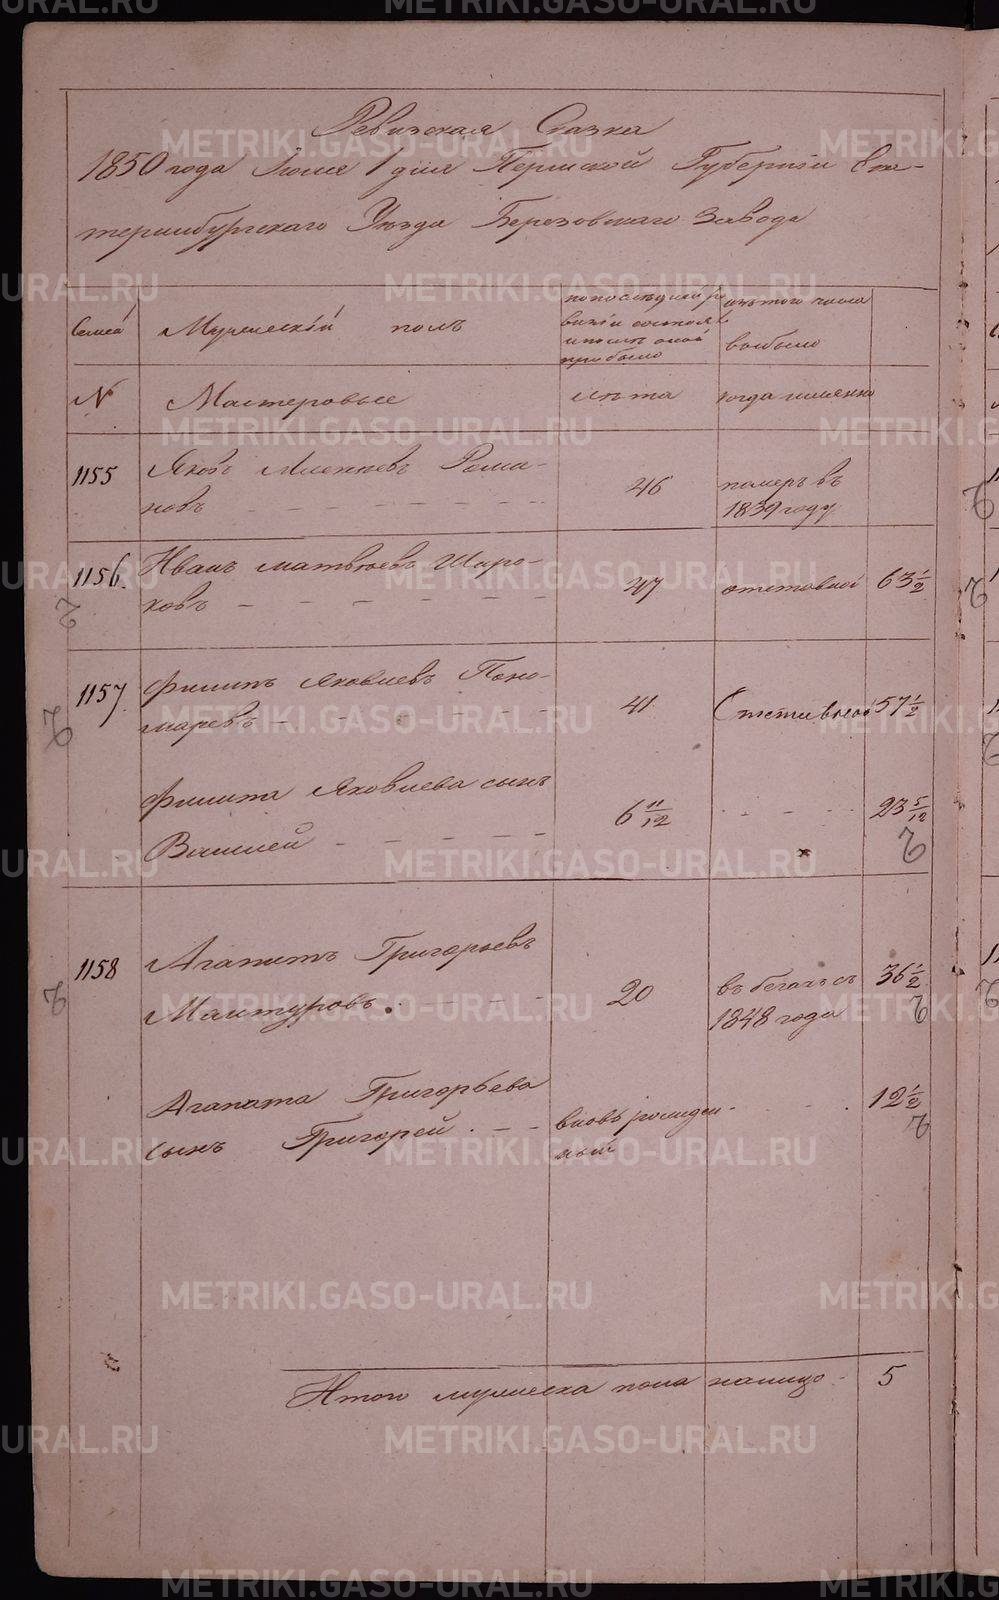 Ревизская Сказка
1850 года Іюля 1 дня Пермской Губерніи Ека-
теринбургскаго Уезда Березовскаго Завода
Семей Мужескій полъ по последней ре визіи состояло и после оной прибыло изъ того числа выбыло
№ Мастеровые лѣта когда именно
1155 Яковъ Рома-
новъ 46 померъ въ 1839 году
1156. Иванъ Матвѣевъ Широ-
ковъ 47 отставной 63 1/2
1157 Филипъ Яковлевъ Поно-
маревъ 41 Отставной 57 1/2
Филипа Яковлева сынъ
Василей 6 11/12 23 5/12
1158 Агапитъ Григорьевъ
Мантуровъ. 20 въ бегахъ съ 1848 года 36 1/2
Агапита Григорьева
сынъ Григорей вновь рожден-ный 12 1/2
Итого мужеска пола налицо 5
METRIKI.GASO-URAL.RU